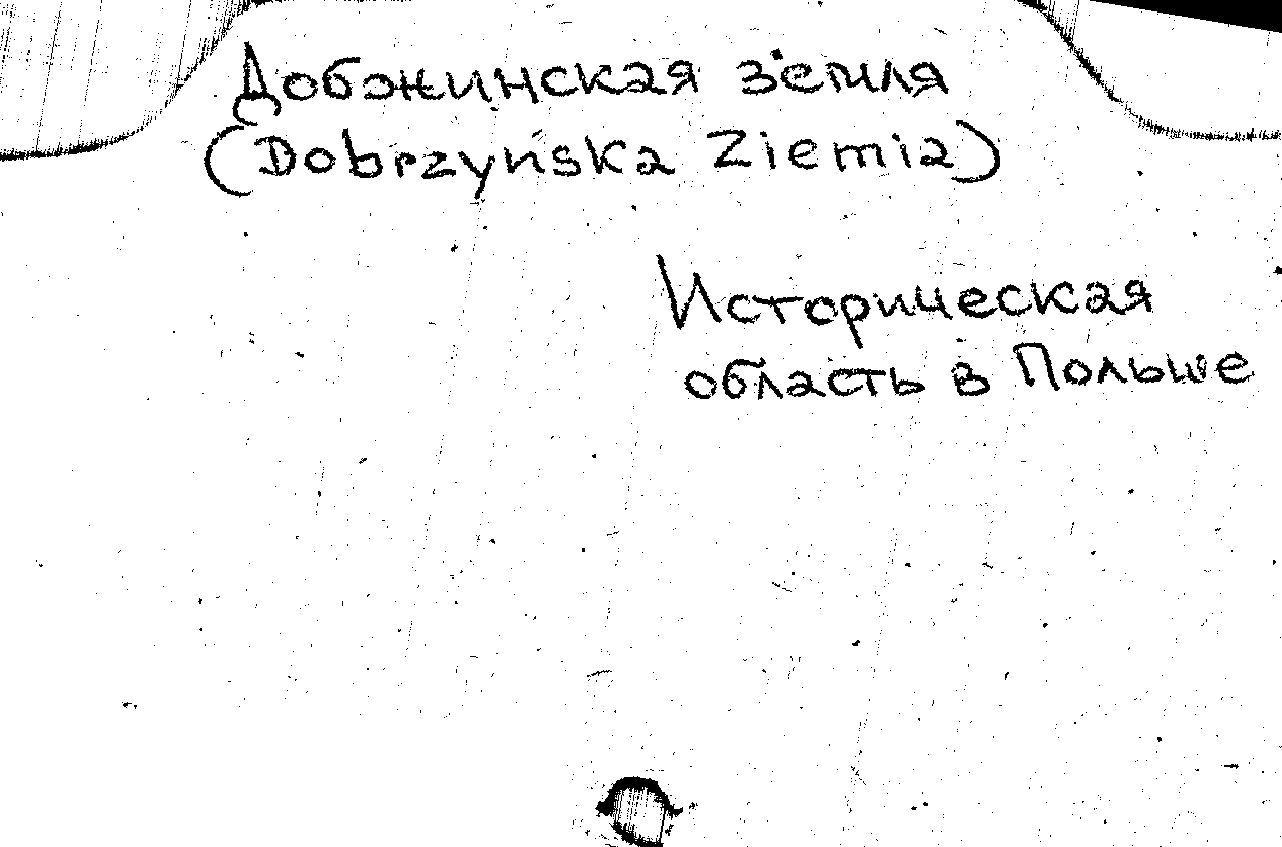 Добжинская земля
(Dobrzyńska Ziemia)
Историческая
область в Польше